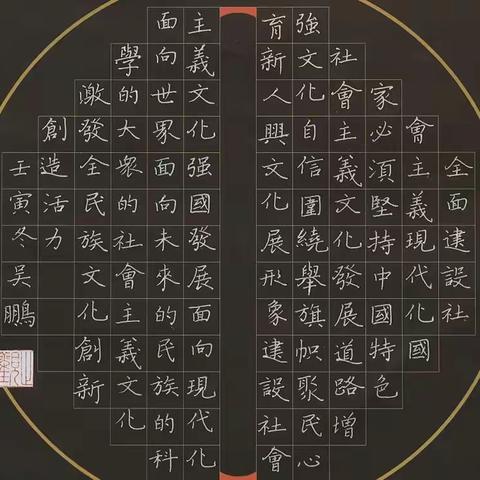 全面建設社
會主義現代化國
家必須堅持中國特色
社會主義文化發展道路增
強文化自信圍繞舉旗幟聚民心
育新人興文化展形象建設社會
主義文化强國發展面向現代化
面向世界面向未來的民族的科
學的大衆的社會主義文化
激發全民族文化創新
創造活力
壬寅冬吳鵬